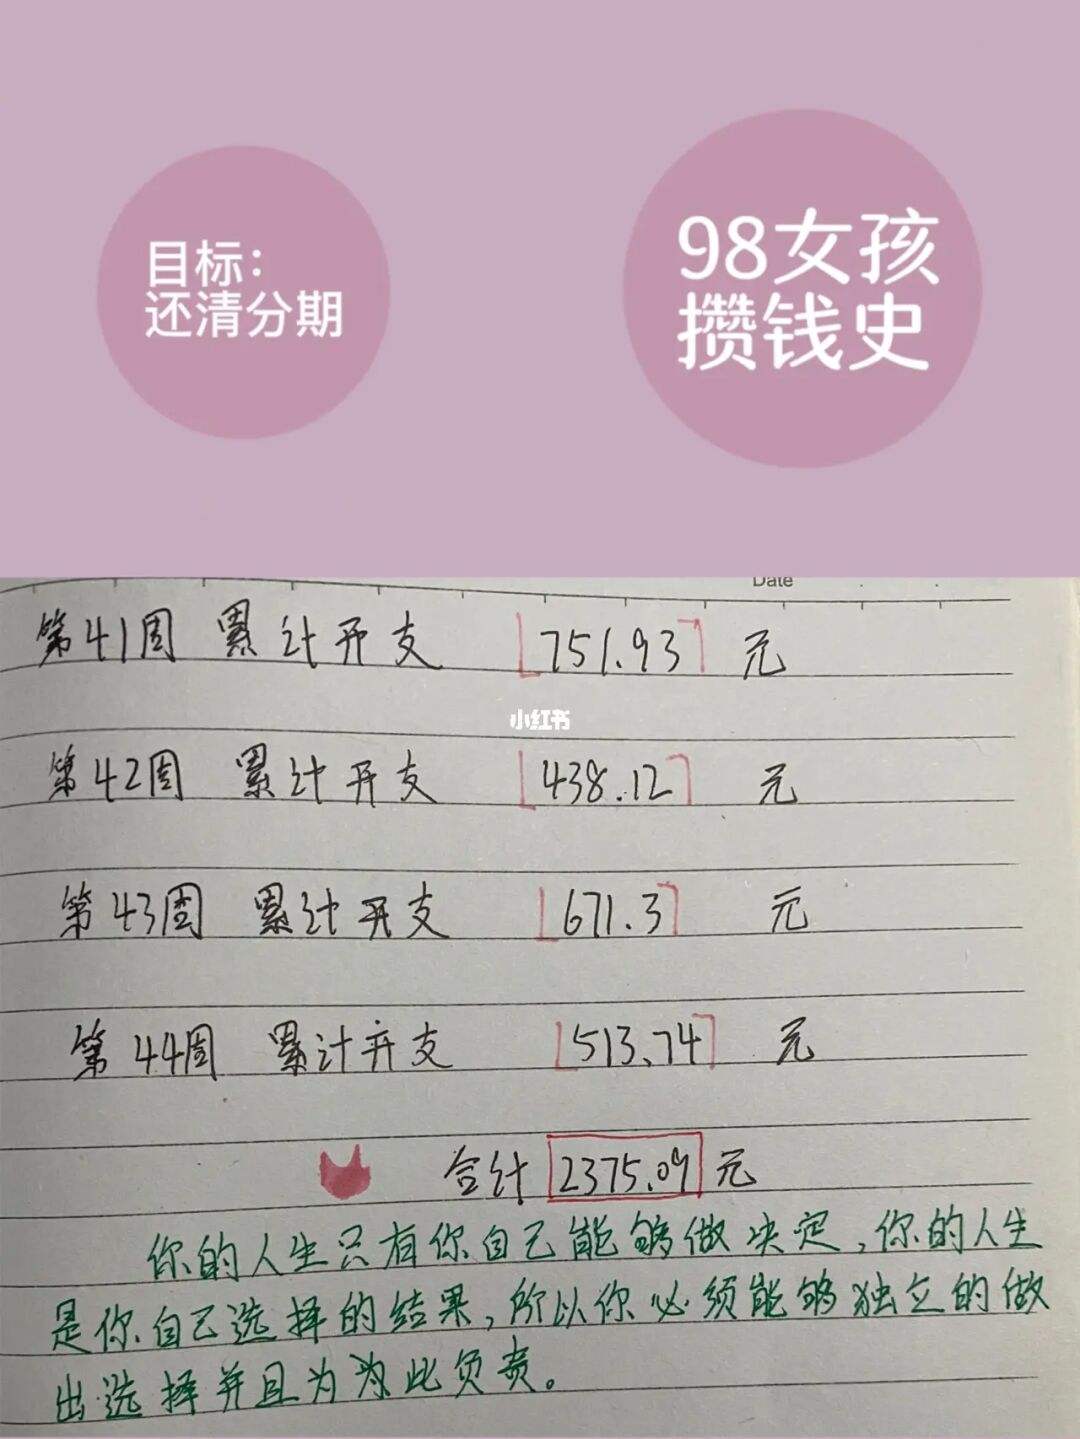 目标：
还清分期
98女孩
攒钱史
Date
第41周 累计开支 751.93 元
小红书
第42周 累计开支 438.12 元
第43周 累计开支 671.3 元
第44周 累计开支 513.74 元
合计 2375.09 元
你的人生只有你自己能够做决定，你的人生
是你自己选择的结果，所以你必须能够独立的做
出选择并且为为此负责。